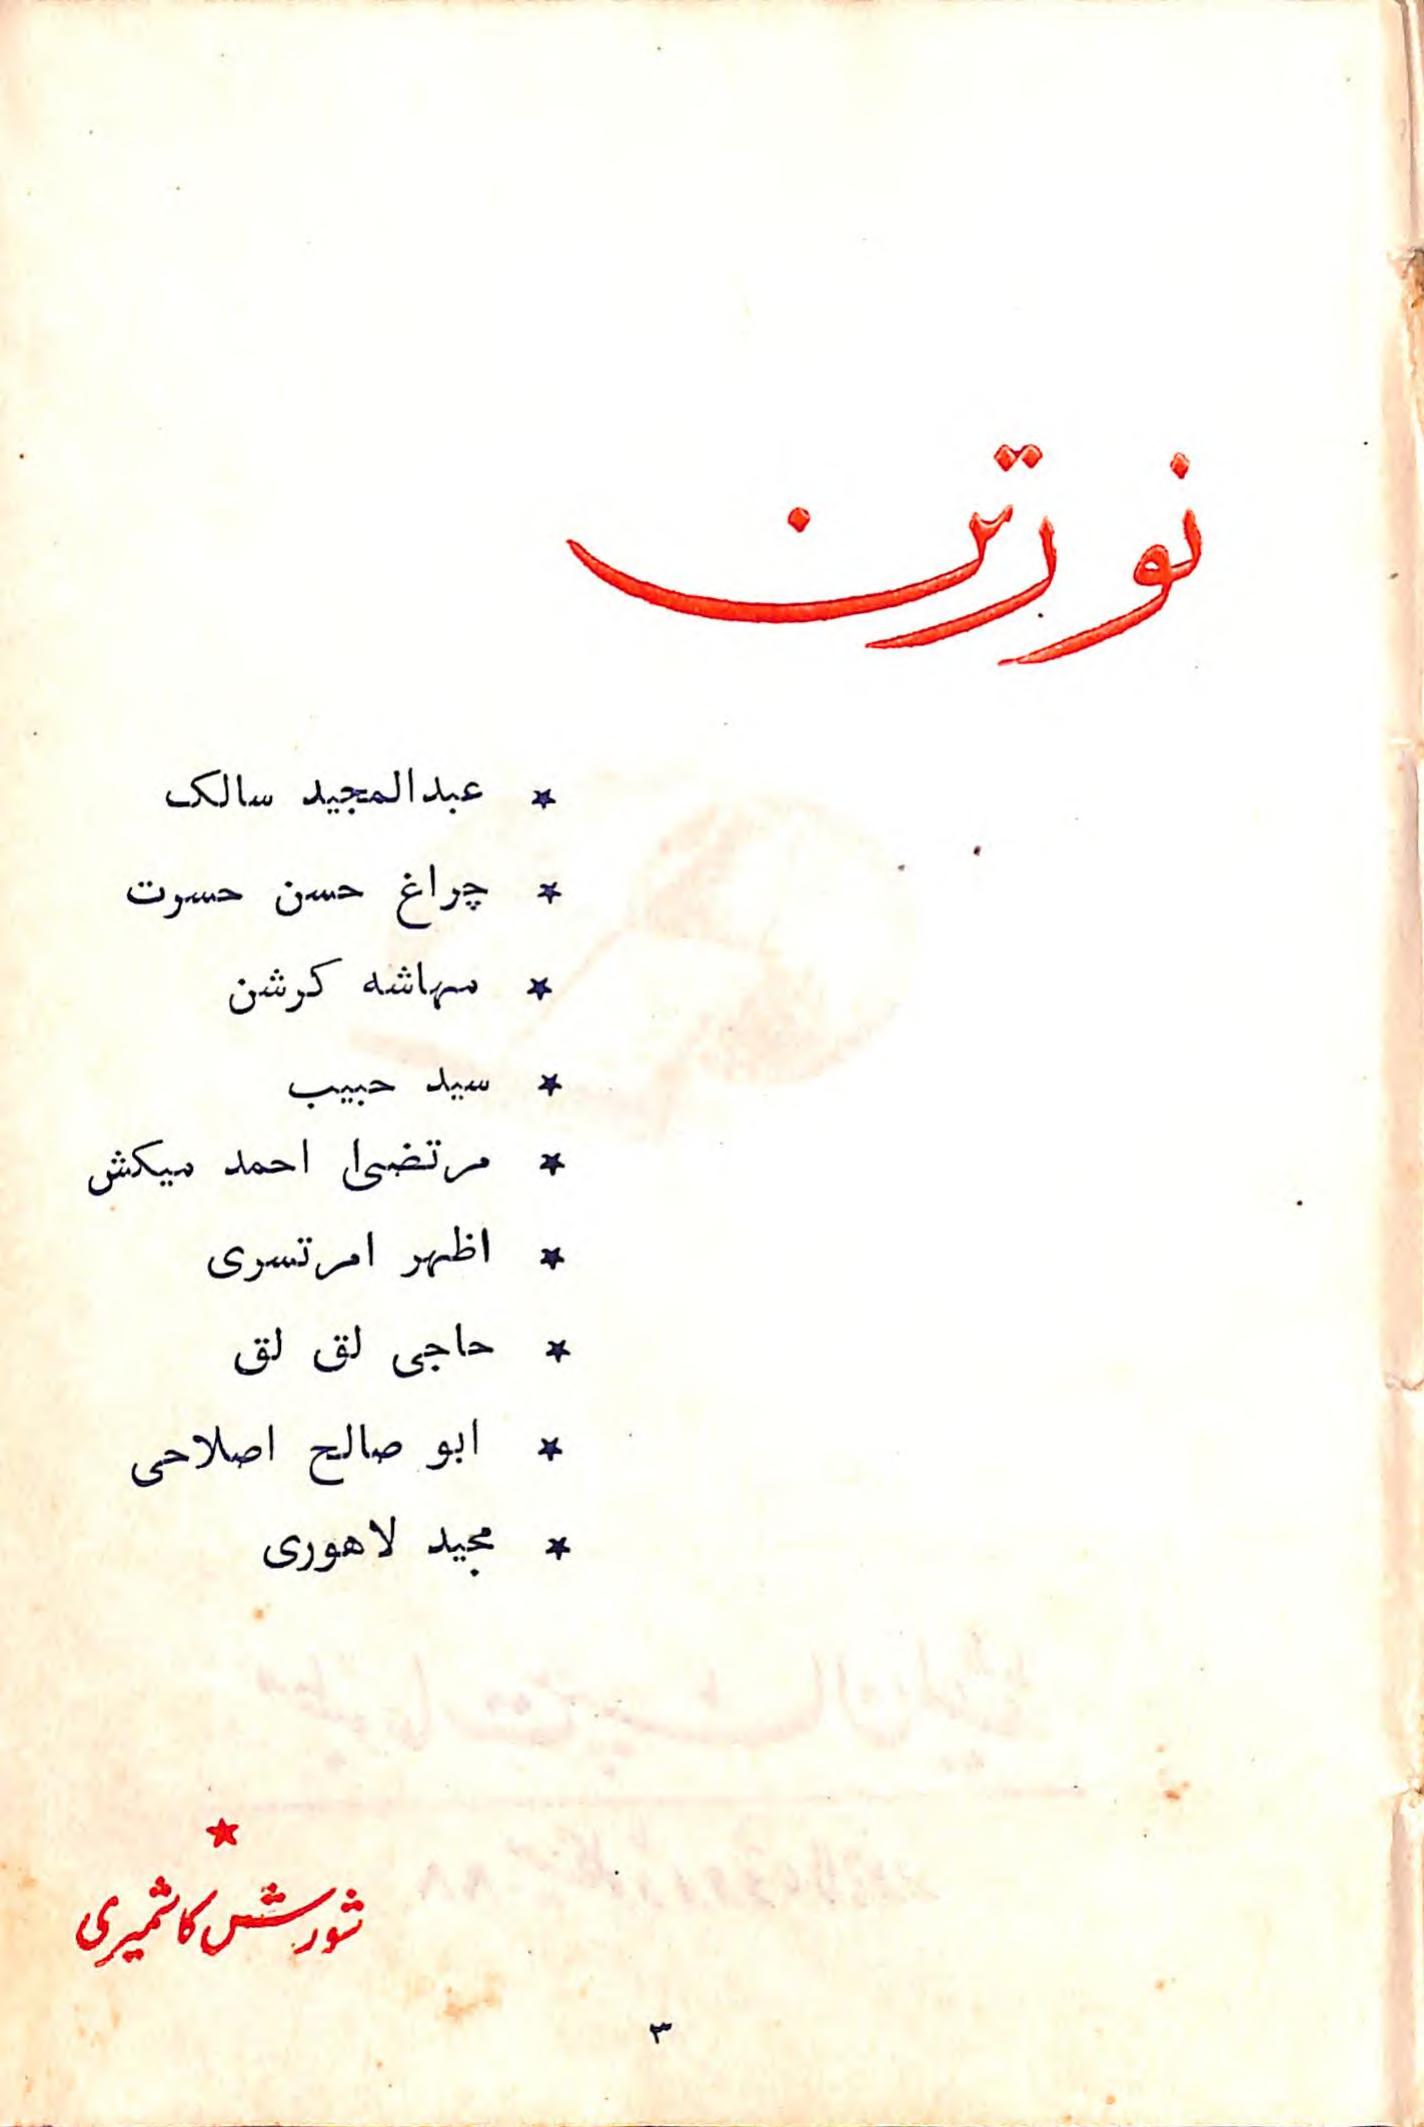 نو رتن
★ عبدالمجید سالک
★ چراغ حسن حسرت
★ مہاشہ کرشن
★ سید حبیب
★ مرتضیٰ احمد میکش
★ اظہر امرتسری
★ حاجی لق لق
★ ابو صالح اصلاحی
★ مجید لاہوری
★
شورش کاشمیری
۳